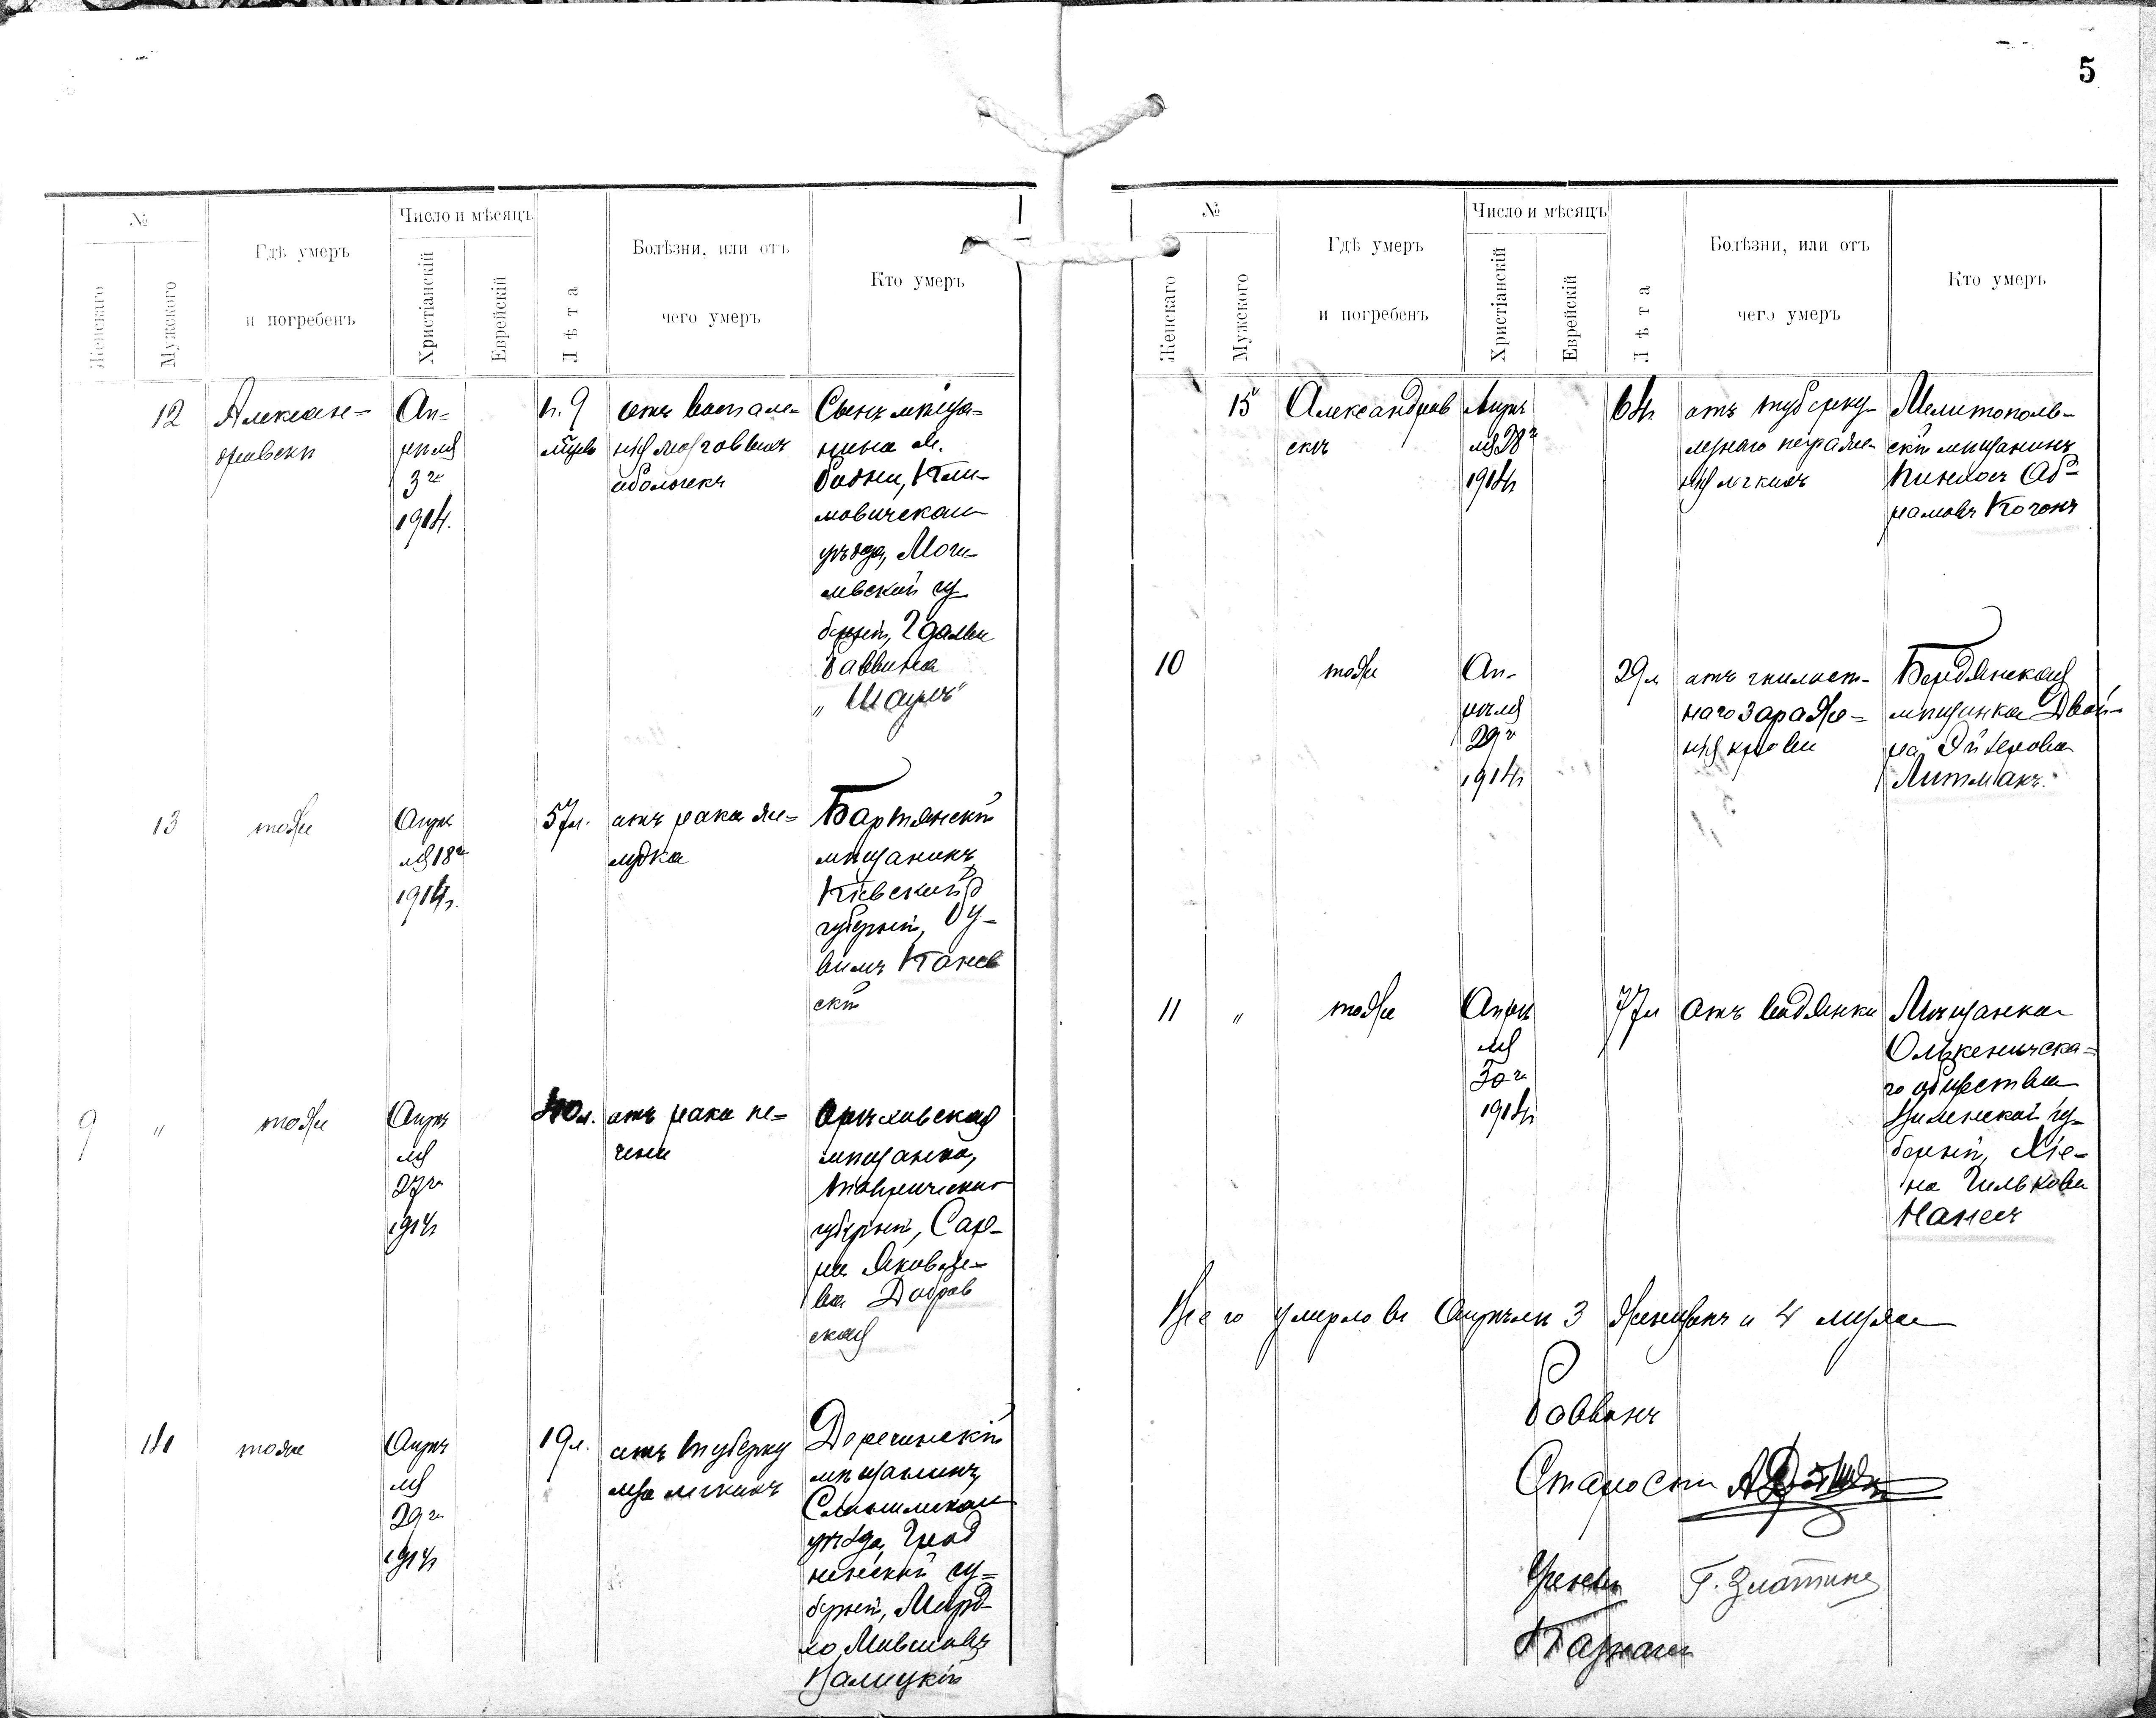 5
№
Женскаго
Мужского
Гдѣ умеръ
и погребенъ
Число и мѣсяцъ
Христіанскій
Еврейскій
Лѣта
Болѣзни, или отъ
чего умеръ
Кто умеръ
12
Алексан-
дровскѣ
Ап-
рѣля
3го
1914.
9
отъ воспале-
нія мозговыхъ
оболочекъ
Сынъ мѣща-
нина м.
Родни, Кли-
мовичскаго
уѣзда, Моги-
левской гу-
берніи, Гдальи
Раввина
„Шаулъ"
13
тоже
Апрѣ
ля 18го
1914г.
57л.
отъ рака же-
лудка
мѣщанинъ,
Кіевской
губерніи, Ру-
вимъ Канев
скій
9
"
тоже
Апрѣ
ля
27го
1914г
40л.
отъ рака пе-
чени
Орѣховская
мѣщанка,
Таврической
губерніи, Сар-
ра Яковле-
ва Добров
ская
14
тоже
Апрѣ
ля
29го
1914г
19л.
отъ туберку
леза легкихъ
Деречинскій
мѣщанинъ,
Слонимскаго
уѣзда, Грод
ненской гу-
берніи, Морд-
хо Мовшовъ
Галицкій
№
Женскаго
Мужского
Гдѣ умеръ
и погребенъ
Число и мѣсяцъ
Христіанскій
Еврейскій
Лѣта
Болѣзни, или отъ
чего умеръ
Кто умеръ
15
Александров
скъ
Апрѣ
ля 28го
1914г
64
отъ туберку-
лезнаго пораже-
нія легкихъ
Мелитополь-
скій мѣщанинъ
Пинхосъ Аб-
рамовъ Коганъ
10
тоже
Ап-
рѣля
29го
1914г
29л
отъ гнилост-
наго зараже-
нія крови
Бердянская
мѣщанка Двой-
ра
Литмакъ.
11
"
тоже
Апрѣ
ля
30го
1914г
77л
отъ водянки
Мѣщанка
Олькеникска-
го общества
Виленской гу-
берніи, Хіе-
на
Всего умерло въ Апрѣлѣ 3 женщинъ и 4 мужч
Раввинъ
Староста
Ученый Г. Златинъ
Казначей